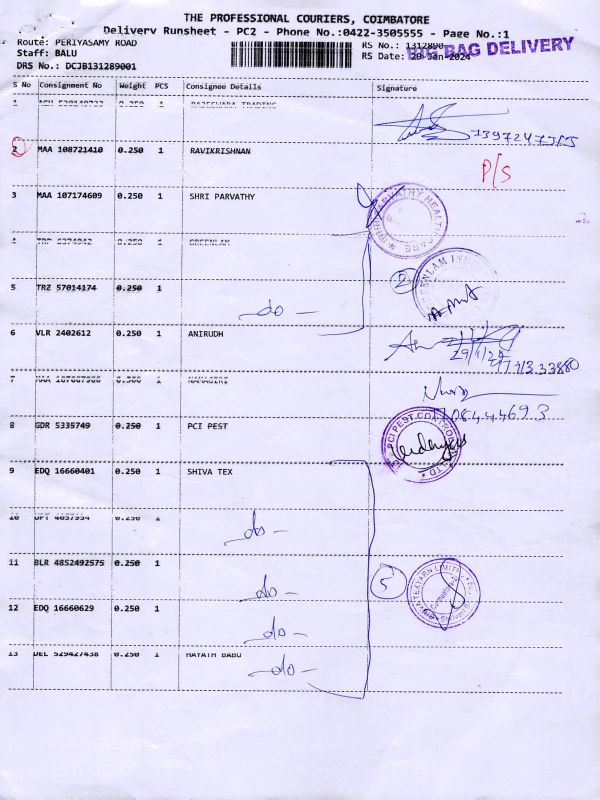 THE PROFESSIONAL COURIERS, COIMBATORE
Delivery Runsheet - PC2 - Phone No.:0422-3505555 - Page No.:1
Route: PERIYASAMY ROAD
RS No.: 1312890
BIG BAG DELIVERY
Staff: BALU
RS Date: 29-Jan-2024
DRS No.: DCJB131289001
S No Consignment No Weight PCS Consignee Details Signature
1 0.250 1 RAJESWARA TRADING
2 MAA 108721410 0.250 1 RAVIKRISHNAN
P/S
3 MAA 107174609 0.250 1 SHRI PARVATHY
4 TRP 0.250 1 GREENLAM
2
5 TRZ 57014174 0.250 1
do
6 VLR 2402612 0.250 1 ANIRUDH
29/1/24
7 MAA 1
8 GDR 5335749 0.250 1 PCI PEST
9 EDQ 16660401 0.250 1 SHIVA TEX
10 0.250 1
do
11 BLR 4852492575 0.250 1
do
5
12 EDQ 16660629 0.250 1
do
13 DEL 529427438 0.250 1 MAYATH BABU
do